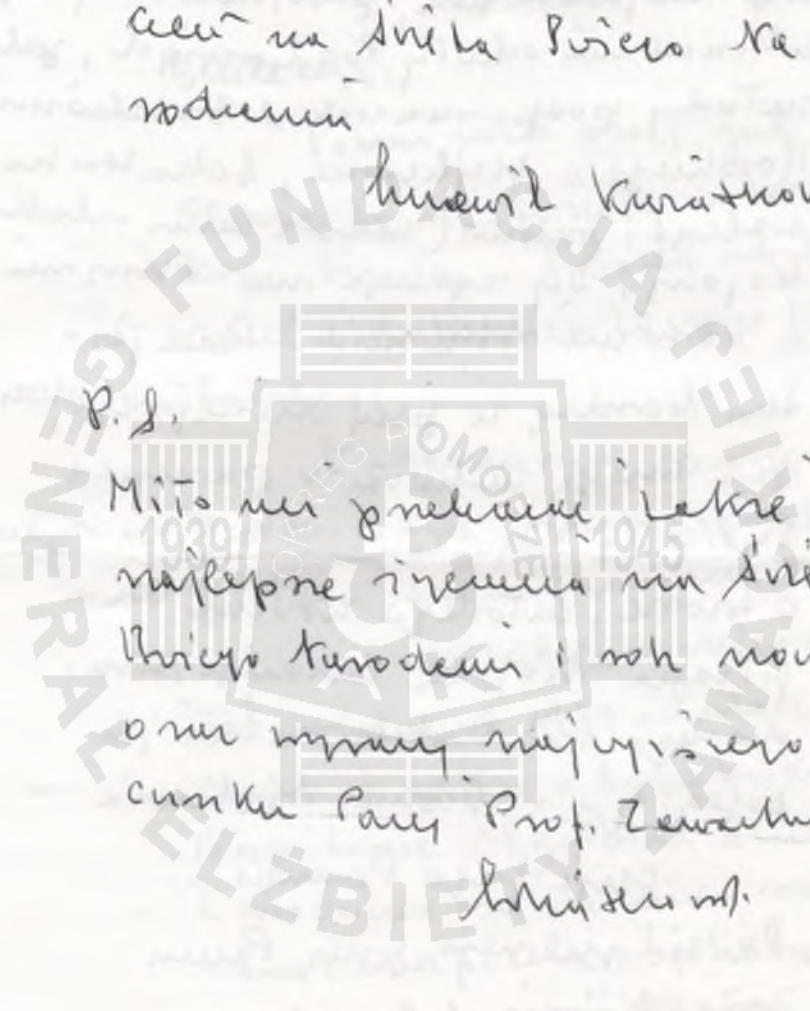 na Święta Bożego Na
rodzenia
Ludwik Kwiatkow
P.S.
Miło mi przekazać także
najlepsze życzenia na Świę
Bożego Narodzenia i rok now
oraz wyrazy najwyższego
cunku Pani Prof. Zawack
FUNDACJA GENERAŁ ELŻBIETY ZAWACKIEJ
OKRĘG POMORZE
1939 1945
AK